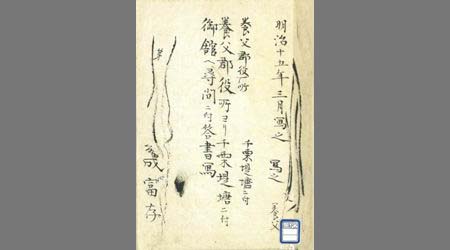 明治十五年三月寫之 寫之
養父
養父郡役所 千栗堤塘ニ付
養父郡役所ヨリ千栗堤塘ニ付
御館ヘ尋問ニ付答書寫
歳富存